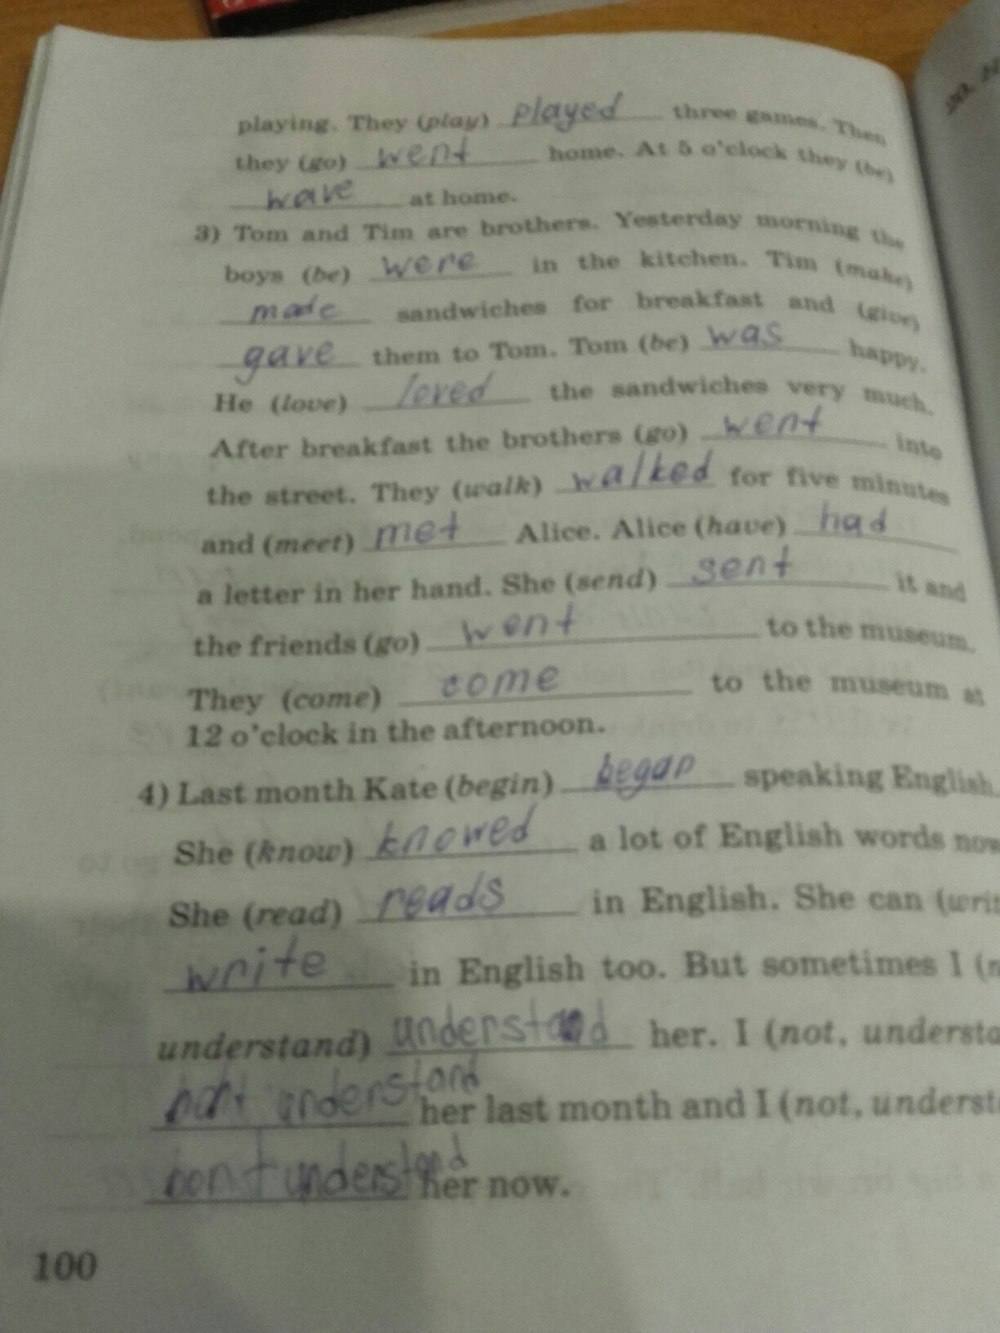 playing. They (play) played three games. Then
they (go) went home. At 5 o'clock they (be)
wave at home.
3) Tom and Tim are brothers. Yesterday morning the
boys (be) were in the kitchen. Tim (make)
made sandwiches for breakfast and (give)
gave them to Tom. Tom (be) was happy.
He (love) loved the sandwiches very much.
After breakfast the brothers (go) went into
the street. They (walk) walked for five minutes
and (meet) met Alice. Alice (have) had
a letter in her hand. She (send) sent it and
the friends (go) went to the museum.
They (come) come to the museum at
12 o'clock in the afternoon.
4) Last month Kate (begin) began speaking English.
She (know) knowed a lot of English words now
She (read) reads in English. She can (writ
write in English too. But sometimes I (n
understand) understand her. I (not, understa
understand her last month and I (not, understa
understand her now.
100
20.